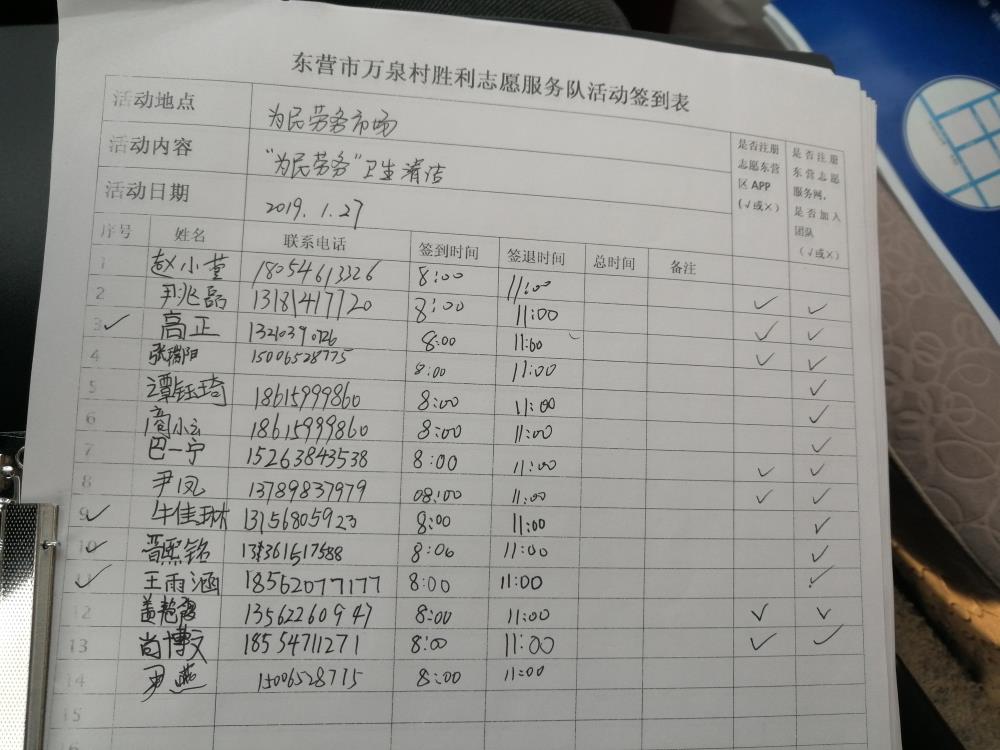 东营市万泉村胜利志愿服务队活动签到表
活动地点 为民劳务市场
活动内容 “为民劳务”卫生清洁
活动日期 2019.1.27
是否注册
志愿东营
区 APP
(√或×)
是否注册
东营志愿
服务网,
是否加入
团队
(√或×)
序号 姓名 联系电话 签到时间 签退时间 总时间 备注
1 赵小萱 18054613326 8:00 11:00 ✓ ✓
2 尹兆磊 13181417720 8:00 11:00 ✓ ✓
3 ✓ 高正 8:00 11:00 ✓ ✓
4 张瑞阳 15006528775 8:00 11:00 ✓
5 谭钰琦 18615999860 8:00 11:00 ✓
6 小云 18615999860 8:00 11:00 ✓
7 巴一宁 15263843538 8:00 11:00 ✓ ✓
8 尹凤 13789837979 08:00 11:00 ✓ ✓
9 ✓ 牛佳琳 13156805923 8:00 11:00 ✓
10 ✓ 晋熙铭 8:00 11:00 ✓
11 ✓ 王雨涵 18562077177 8:00 11:00 ✓
12 13562260947 8:00 11:00 ✓ ✓
13 尚博文 18554711271 8:00 11:00 ✓ ✓
14 尹燕 8:00 11:00
15